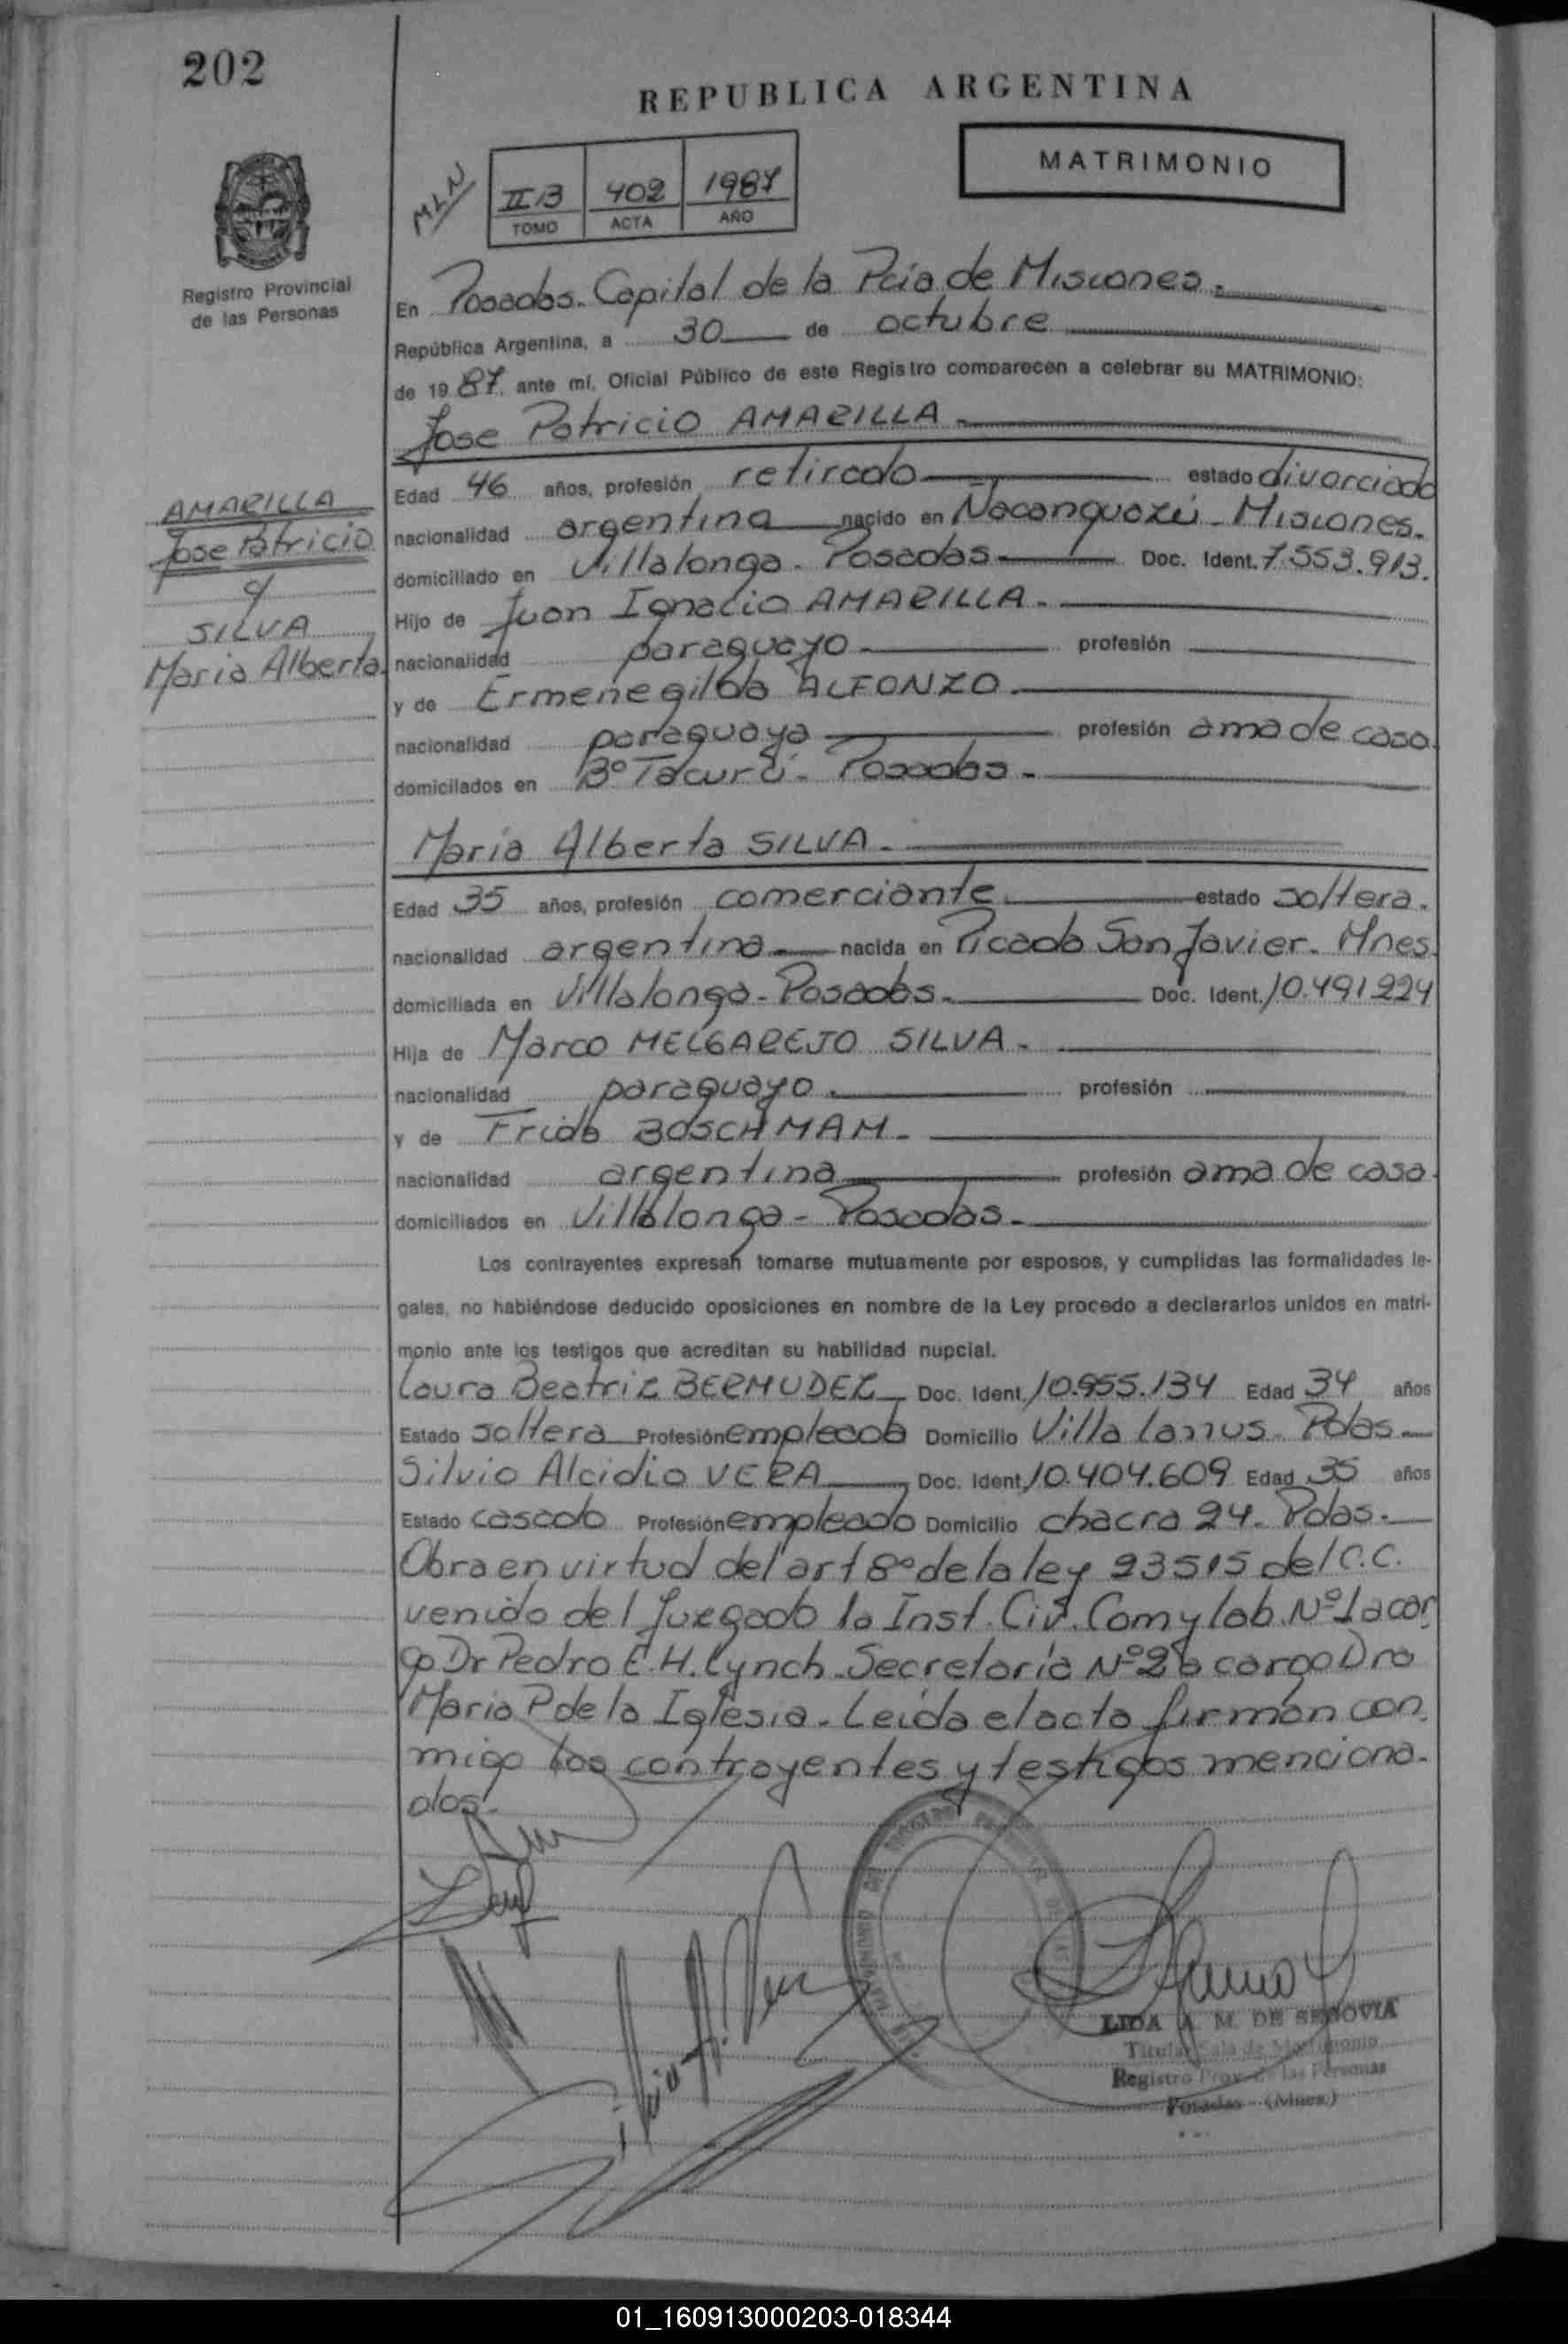 202
REPUBLICA ARGENTINA
MATRIMONIO
MLN
II B 402 1987
TOMO ACTA AÑO
Registro Provincial
de las Personas
En Posadas. Capital de la Pcia de Misiones.
República Argentina, a 30 de octubre
de 1987, ante mí, Oficial Público de este Registro comparecen a celebrar su MATRIMONIO:
Jose Patricio AMARILLA.
AMARILLA
Jose Patricio
c/
SILVA
Maria Alberta.
Edad 46 años, profesión retirado estado divorciado
nacionalidad argentina nacido en Ñacanguazú - Misiones.
domiciliado en Villalonga. Posadas Doc. Ident. 7.553.913.
Hijo de Juan Ignacio AMARILLA.
nacionalidad paraguayo profesión
y de Ermenegilda ALFONZO.
nacionalidad paraguaya profesión ama de casa.
domicilados en Bº Tacurú. Posadas.
María Alberta SILVA.
Edad 35 años, profesión comerciante estado soltera.
nacionalidad argentina. nacida en Picada San Javier. Mnes.
domiciliada en Villalonga - Posadas. Doc. Ident. 10.491224
Hija de Marco MELGAREJO SILVA.
nacionalidad paraguayo profesión
y de Frida BOSCHMAM.
nacionalidad argentina profesión ama de casa.
domiciliados en Villalonga - Posadas.
Los contrayentes expresan tomarse mutuamente por esposos, y cumplidas las formalidades le-
gales, no habiéndose deducido oposiciones en nombre de la Ley procedo a declararlos unidos en matri-
monio ante los testigos que acreditan su habilidad nupcial.
Laura Beatriz BERMUDEZ Doc. Ident. 10.955.134 Edad 34 años
Estado soltera Profesión empleada Domicilio Villa Lanus. Pdas.
Silvio Alcidio VERA Doc. Ident. 10.404.609 Edad 35 años
Estado casado Profesión empleado Domicilio chacra 24. Pdas.
Obra en virtud del art 8º de la ley 23515 del C.C.
venido del Juzgado 1a Inst. Civ. Com y lab. Nº 1 a car
go Dr Pedro E. H. Lynch. Secretaría Nº 2 a cargo Dra
Maria P de la Iglesia. Leída el acta firman con
migo los contrayentes y testigos menciona-
dos.
LIDA A. M. DE SEGOVIA
Titular Sala de Matrimonio
Registro Prov. de las Personas
Posadas (Mnes.)
01_160913000203-018344